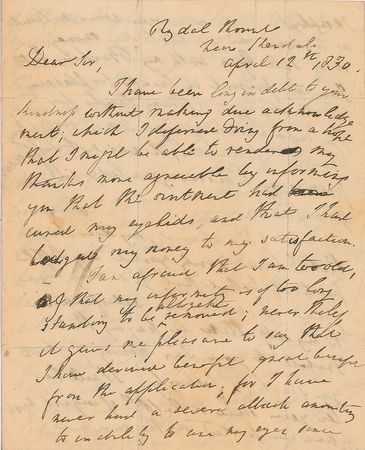 Rydal Mount
near Kendal
April 12th 1830.
Dear Sir,
I have been long in debt to your
kindness without making due acknowledge
ment; which I deferred doing from a hope
that I might be able to render my
thanks more agreeable by informing
you that the ointment had
cured my eyelids, and that I had
my money to my satisfaction.
I am afraid that I am too old,
& that my infirmity is of too long
standing to be altogether removed; nevertheless
it gives me pleasure to say that
I have derived benefit great benefit
from the application; for I have
never had a severe attack amounting
to inability to use my eyes since